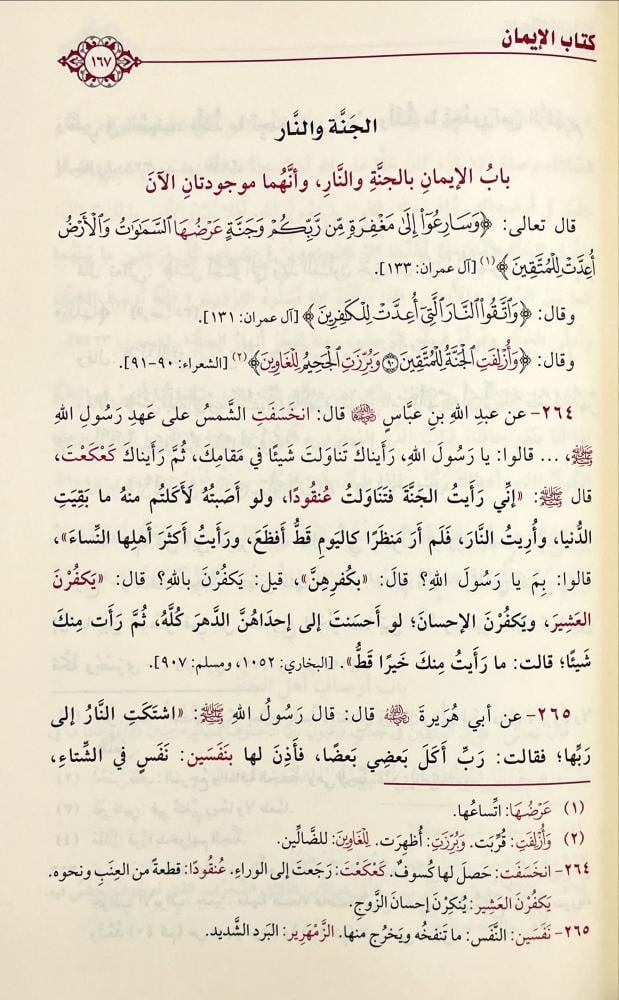 كتاب الإيمان
١٦٧
الجَنَّة والنَّار
بابُ الإيمانِ بالجنَّةِ والنَّارِ، وأنَّهُما موجودتانِ الآنَ
قال تعالى: ﴿وَسَارِعُوٓا۟ إِلَىٰ مَغْفِرَةٍ مِّن رَّبِّكُمْ وَجَنَّةٍ عَرْضُهَا ٱلسَّمَٰوَٰتُ وَٱلْأَرْضُ
أُعِدَّتْ لِلْمُتَّقِينَ﴾(١) [آل عمران: ١٣٣].
وقال: ﴿وَٱتَّقُوا۟ ٱلنَّارَ ٱلَّتِىٓ أُعِدَّتْ لِلْكَٰفِرِينَ﴾ [آل عمران: ١٣١].
وقال: ﴿وَأُزْلِفَتِ ٱلْجَنَّةُ لِلْمُتَّقِينَ ۝٩٠ وَبُرِّزَتِ ٱلْجَحِيمُ لِلْغَاوِينَ﴾(٢) [الشعراء: ٩٠-٩١].
٢٦٤- عن عبدِ اللهِ بنِ عبَّاسٍ ﷺ قال: انخَسَفَتِ الشَّمسُ على عَهدِ رَسُولِ اللهِ
ﷺ، ... قالوا: يا رَسُولَ اللهِ، رَأيناكَ تَناوَلتَ شَيئًا في مَقامِكَ، ثُمَّ رَأيناكَ كَعْكَعْتَ،
قال ﷺ: «إنِّي رَأيتُ الجَنَّةَ فتَناوَلتُ عُنقُودًا، ولو أصَبتُهُ لَأكَلتُم منهُ ما بَقِيَتِ
الدُّنيا، وأُرِيتُ النَّارَ، فَلَم أرَ مَنظَرًا كاليَومِ قَطُّ أفظَعَ، ورَأيتُ أكثَرَ أهلِها النِّساءَ»،
قالوا: بِمَ يا رَسُولَ اللهِ؟ قالَ: «بكُفرِهِنَّ»، قيل: يَكفُرْنَ باللهِ؟ قال: «يَكفُرْنَ
العَشِيرَ، ويَكفُرْنَ الإحسانَ؛ لو أحسَنتَ إلى إحداهُنَّ الدَّهرَ كُلَّهُ، ثُمَّ رَأت مِنكَ
شَيئًا؛ قالت: ما رَأيتُ مِنكَ خَيرًا قَطُّ». [البخاري: ١٠٥٢، ومسلم: ٩٠٧].
٢٦٥- عن أبي هُرَيرةَ رضي الله عنه قال: قال رَسُولُ اللهِ ﷺ: «اشتَكَتِ النَّارُ إلى
رَبِّها؛ فقالت: رَبِّ أكَلَ بَعضِي بَعضًا، فأَذِنَ لها بنَفَسَينِ: نَفَسٍ في الشِّتاءِ،
(١) عَرْضُهَا: اتِّساعُها.
(٢) وَأُزْلِفَتِ: قُرِّبَت. وَبُرِّزَتِ: أُظهَرَت. لِلْغَاوِينَ: للضالِّين.
٢٦٤- انخَسَفَت: حَصلَ لها كُسوفٌ. كَعْكَعْتَ: رَجَعتَ إلى الوراءِ. عُنقُودًا: قطعةً من العِنَبِ ونحوِه.
يَكفُرْنَ العَشِير: يُنكِرْنَ إحسانَ الزَّوجِ.
٢٦٥- نَفَسَين: النَّفَس: ما تَنفخُه ويَخرُج منها. الزَّمْهَرِير: البَرد الشَّديد.